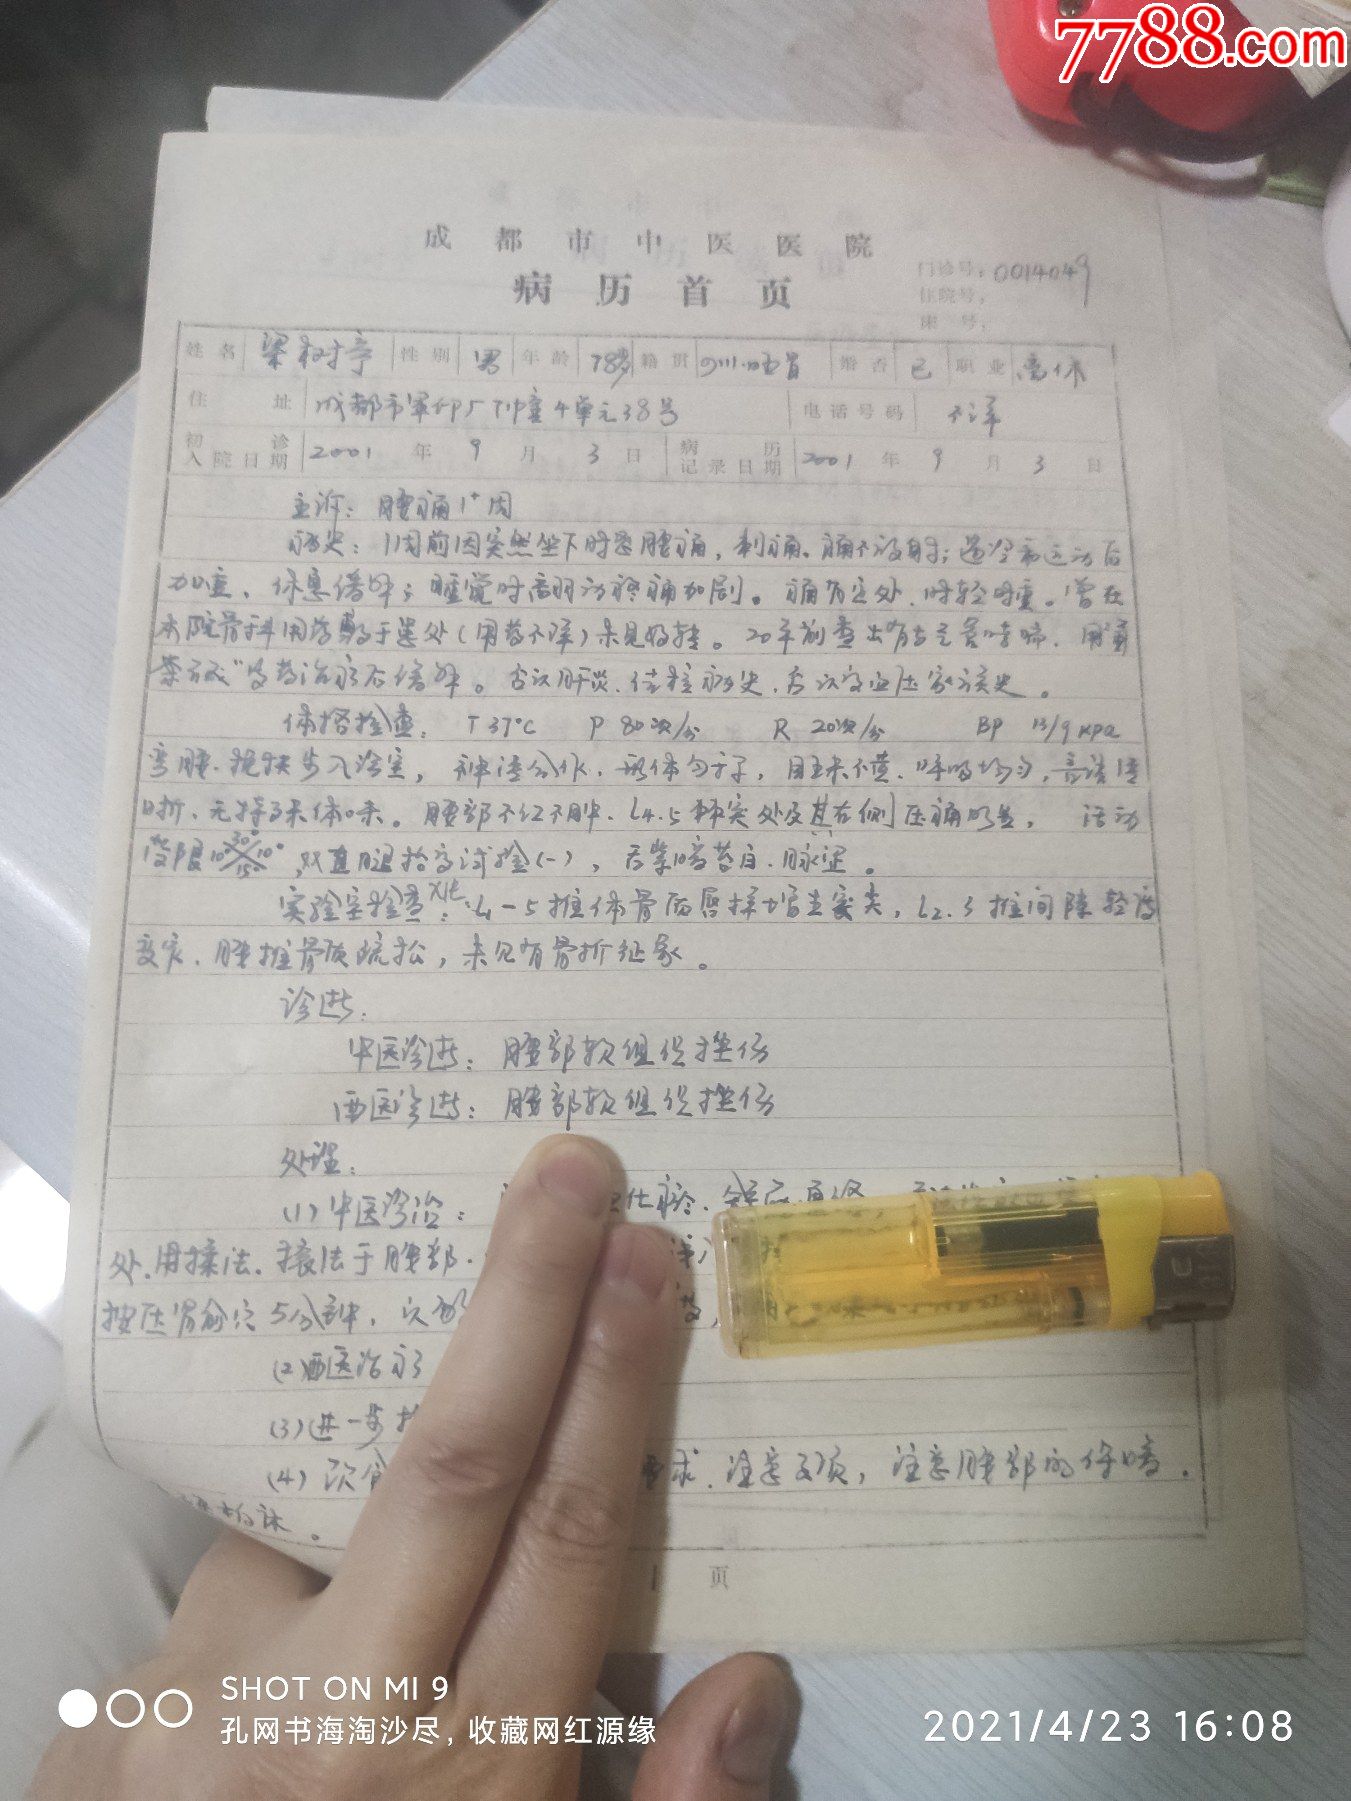 7788.com
成都市中医医院
病历首页
门诊号：0014049
住院号：
床号：
姓名 梁树亭 性别 男 年龄 78岁 籍贯 四川 婚否 已 职业 离休
住址 成都市军 4单元38号 电话号码 不详
初诊入院日期 2001年9月3日 病历记录日期 2001年9月3日
主诉：腰痛1⁺周
病史：1⁺周前因突然坐下时患腰痛，刺痛、痛不放射；遇冷和运动后
加重，休息缓解；睡觉时翻动疼痛加剧。痛有定处、时轻时重。曾在
本院骨科用药于患处（用药不详）未见好转。20年前查出有支气管哮喘，用"氨
茶碱"等药治疗后缓解。否认肝炎、结核病史，否认高血压家族史。
体格检查：T 37℃ P 80次/分 R 20次/分 BP 13/9 kpa
弯腰、步入诊室，神清合作，形体匀，呼吸均匀，言语清
晰，无特殊体味。腰部不红不肿，L4.5棘突处及其右侧压痛明显，活动
受限 30° 10° 10° 15°，双直腿抬高试验（-），舌紫暗苔白、脉涩。
实验室检查：X片：L1-5椎体骨质唇样增生变尖，L2.3椎间隙轻度
变窄，腰椎骨质疏松，未见有骨折征象。
诊断：
中医诊断：腰部软组织挫伤
西医诊断：腰部软组织挫伤
处理：
（1）中医诊治：
处，用揉法、滚法于腰部，
按压肾俞穴5分钟，次
（2）西医治疗
（3）进一步
（4）饮食 要求、注意事项，注意腰部的保暖，
休。
1页
SHOT ON MI 9
孔网书海淘沙尽，收藏网红源缘
2021/4/23 16:08